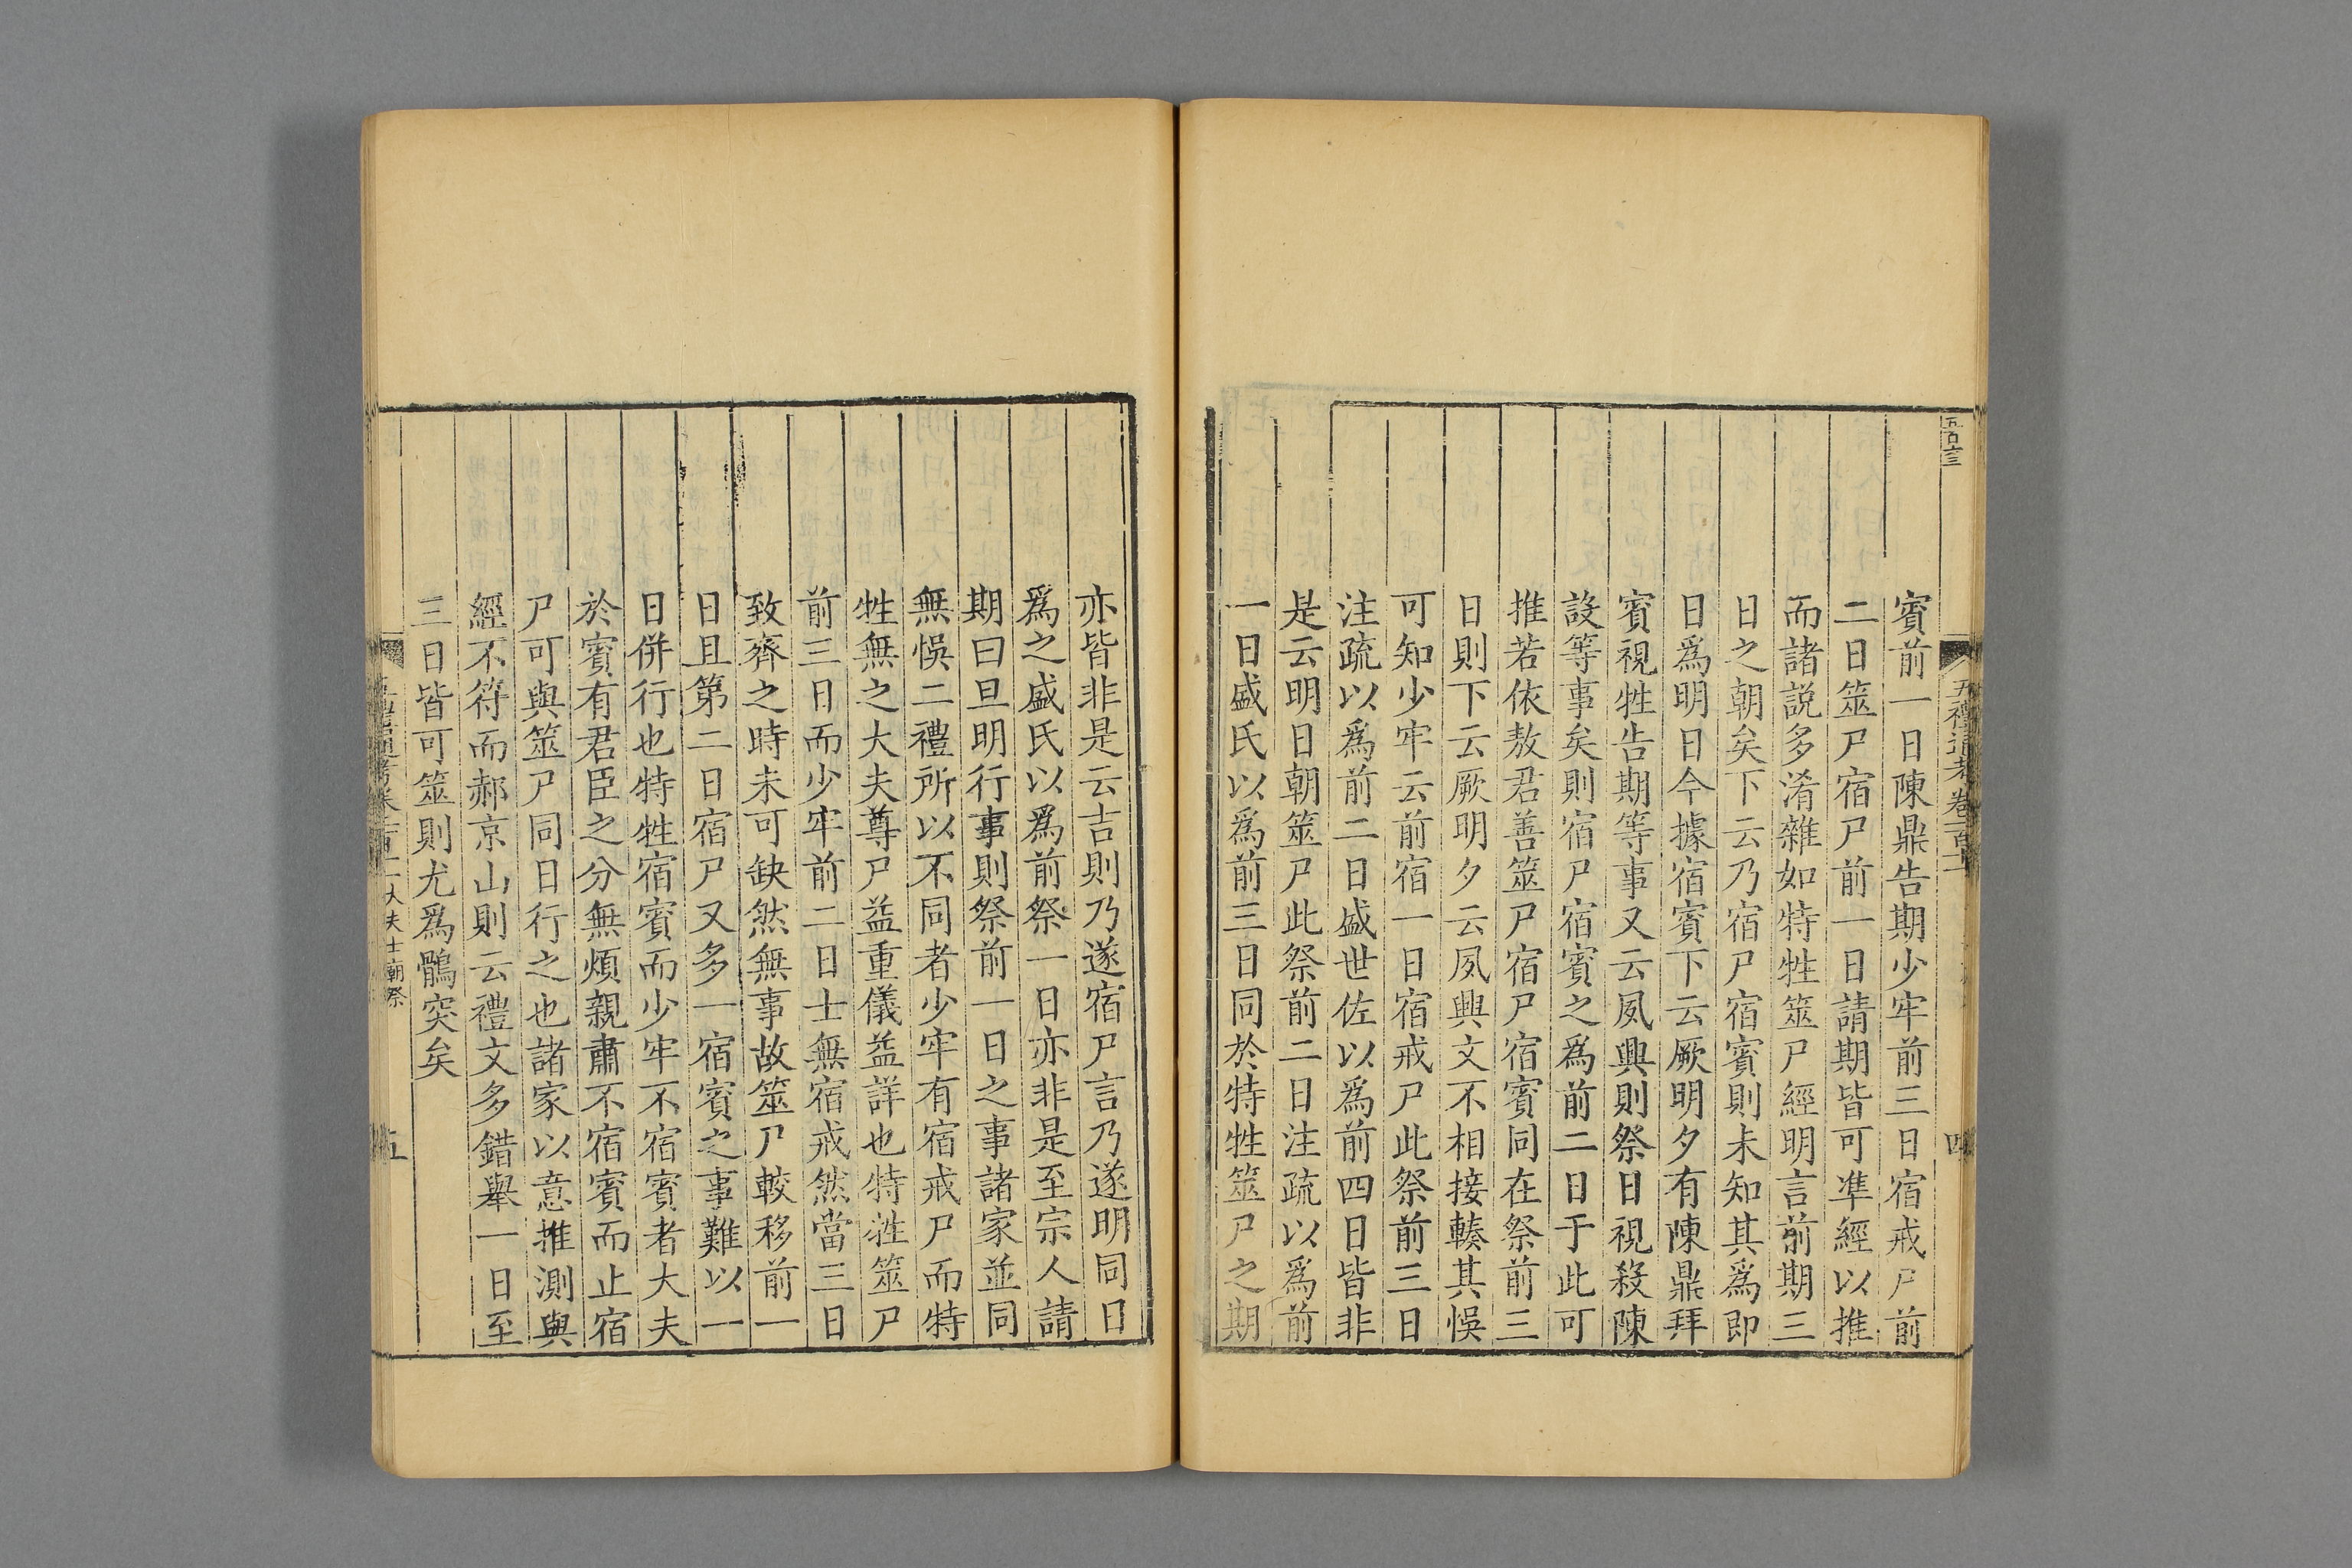 五百六三
五禮通考卷一百十一
四
賓前一日陳鼎告期少牢前三日宿戒尸前
二日筮尸宿尸前一日請期皆可準經以推
而諸説多淆雜如特牲筮尸經明言前期三
日之朝矣下云乃宿尸宿賓則未知其爲即
日爲明日今據宿賓下云厥明夕有陳鼎拜
賓視牲告期等事又云夙興則祭日視殺陳
設等事矣則宿尸宿賓之爲前二日于此可
推若依敖君善筮尸宿尸宿賓同在祭前三
日則下云厥明夕云夙興文不相接輳其悞
可知少牢云前宿一日宿戒尸此祭前三日
注疏以爲前二日盛世佐以爲前四日皆非
是云明日朝筮尸此祭前二日注疏以爲前
一日盛氏以爲前三日同於特牲筮尸之期
亦皆非是云吉則乃遂宿尸言乃遂明同日
爲之盛氏以爲前祭一日亦非是至宗人請
期曰旦明行事則祭前一日之事諸家並同
無悞二禮所以不同者少牢有宿戒尸而特
牲無之大夫尊尸益重儀益詳也特牲筮尸
前三日而少牢前二日士無宿戒然當三日
致齊之時未可缺然無事故筮尸較移前一
日且第二日宿尸又多一宿賓之事難以一
日併行也特牲宿賓而少牢不宿賓者大夫
於賓有君臣之分無煩親肅不宿賓而止宿
尸可與筮尸同日行之也諸家以意推測與
經不符而郝京山則云禮文多錯舉一日至
三日皆可筮則尤爲鶻突矣
大夫士廟祭
五